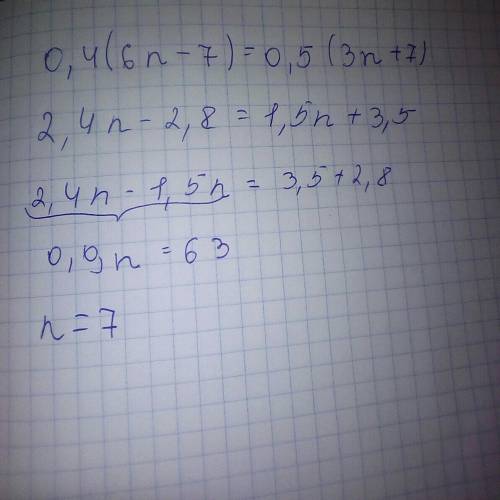 0,4(6n-7)=0,5(3n+7)
2,4n-2,8=1,5n+3,5
2,4n-1,5n=3,5+2,8
0,9n=63
n=7